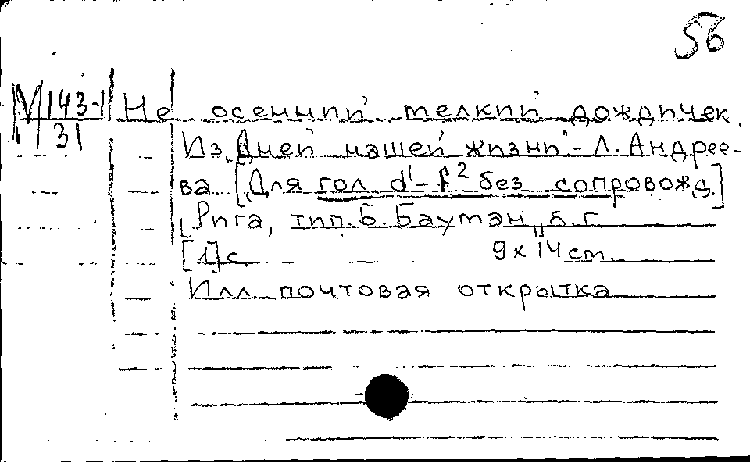 56
М 143-1/31 Не осенний мелкий дождичек.
Из „Дней нашей жизни" - Л. Андрее-
ва [Для гол. d¹-f² без сопровожд.]
[Рига, тип. б. Бауман, б. г.
[1]с. 9 х 14 cm
Илл. почтовая открытка